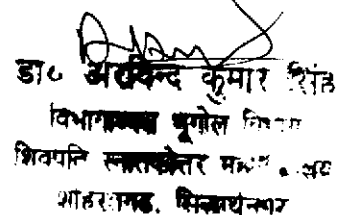 डा० अरविन्द कुमार सिंह
विभागाध्यक्ष भूगोल विभाग
शिवपति स्नातकोत्तर
शोहरतगढ़, सिद्धार्थनगर